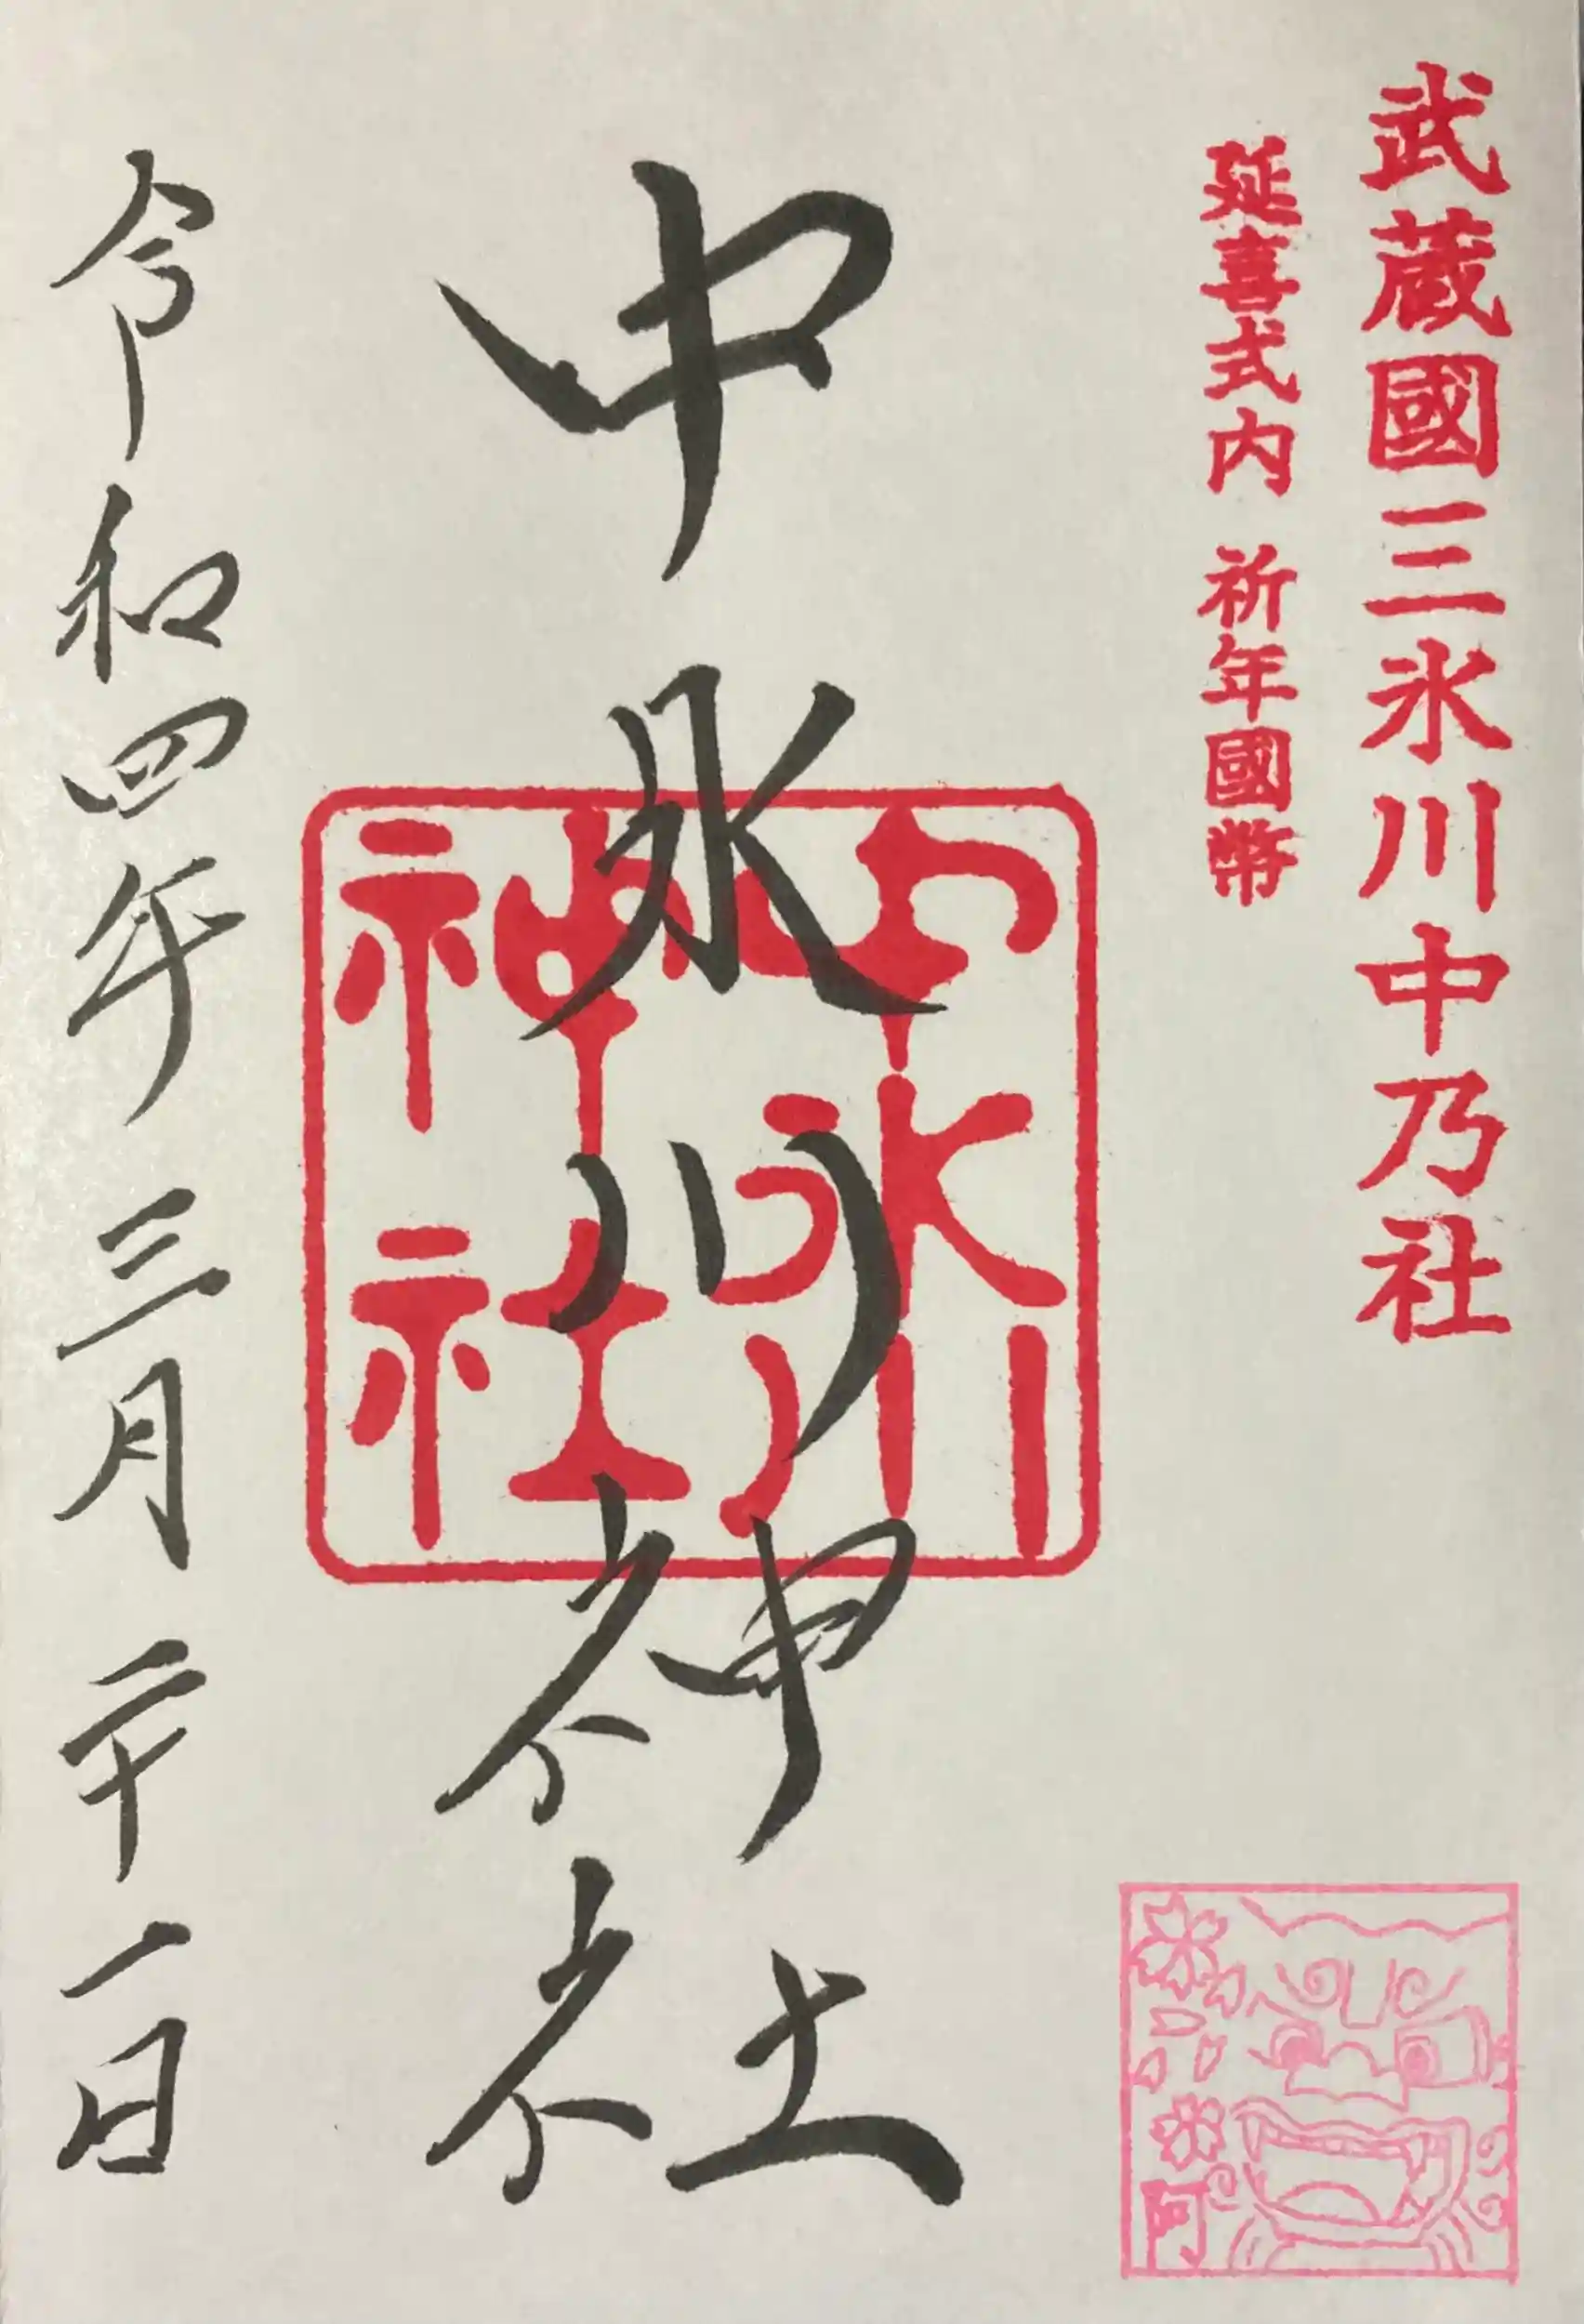 武蔵國三氷川中乃社
延喜式内 祈年國幣
中氷川神社
中氷川神社
令和四年三月二十一日
阿